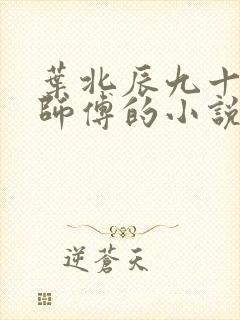 葉北辰九十
師傅的小說
逆蒼天